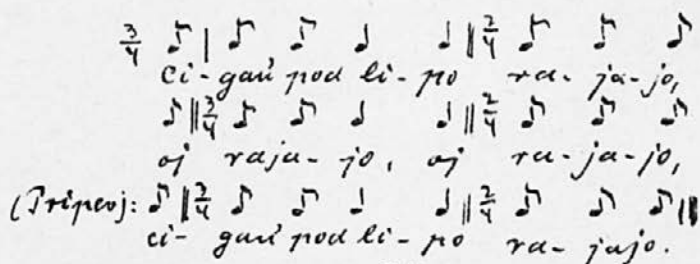 3/4 ♪ | ♪ ♪ ♩ ♩ || 2/4 ♪ ♪ ♪
ci-gań pod li-po ra-ja-jo,
♪ || 3/4 ♪ ♪ ♩ ♩ || 2/4 ♪ ♪ ♪
oj raja-jo, oj ra-ja-jo,
(Pripevj: ♪ || 3/4 ♪ ♪ ♩ ♩ || 2/4 ♪ ♪ ♪ ||
ci-gań pod li-po ra-jajo.